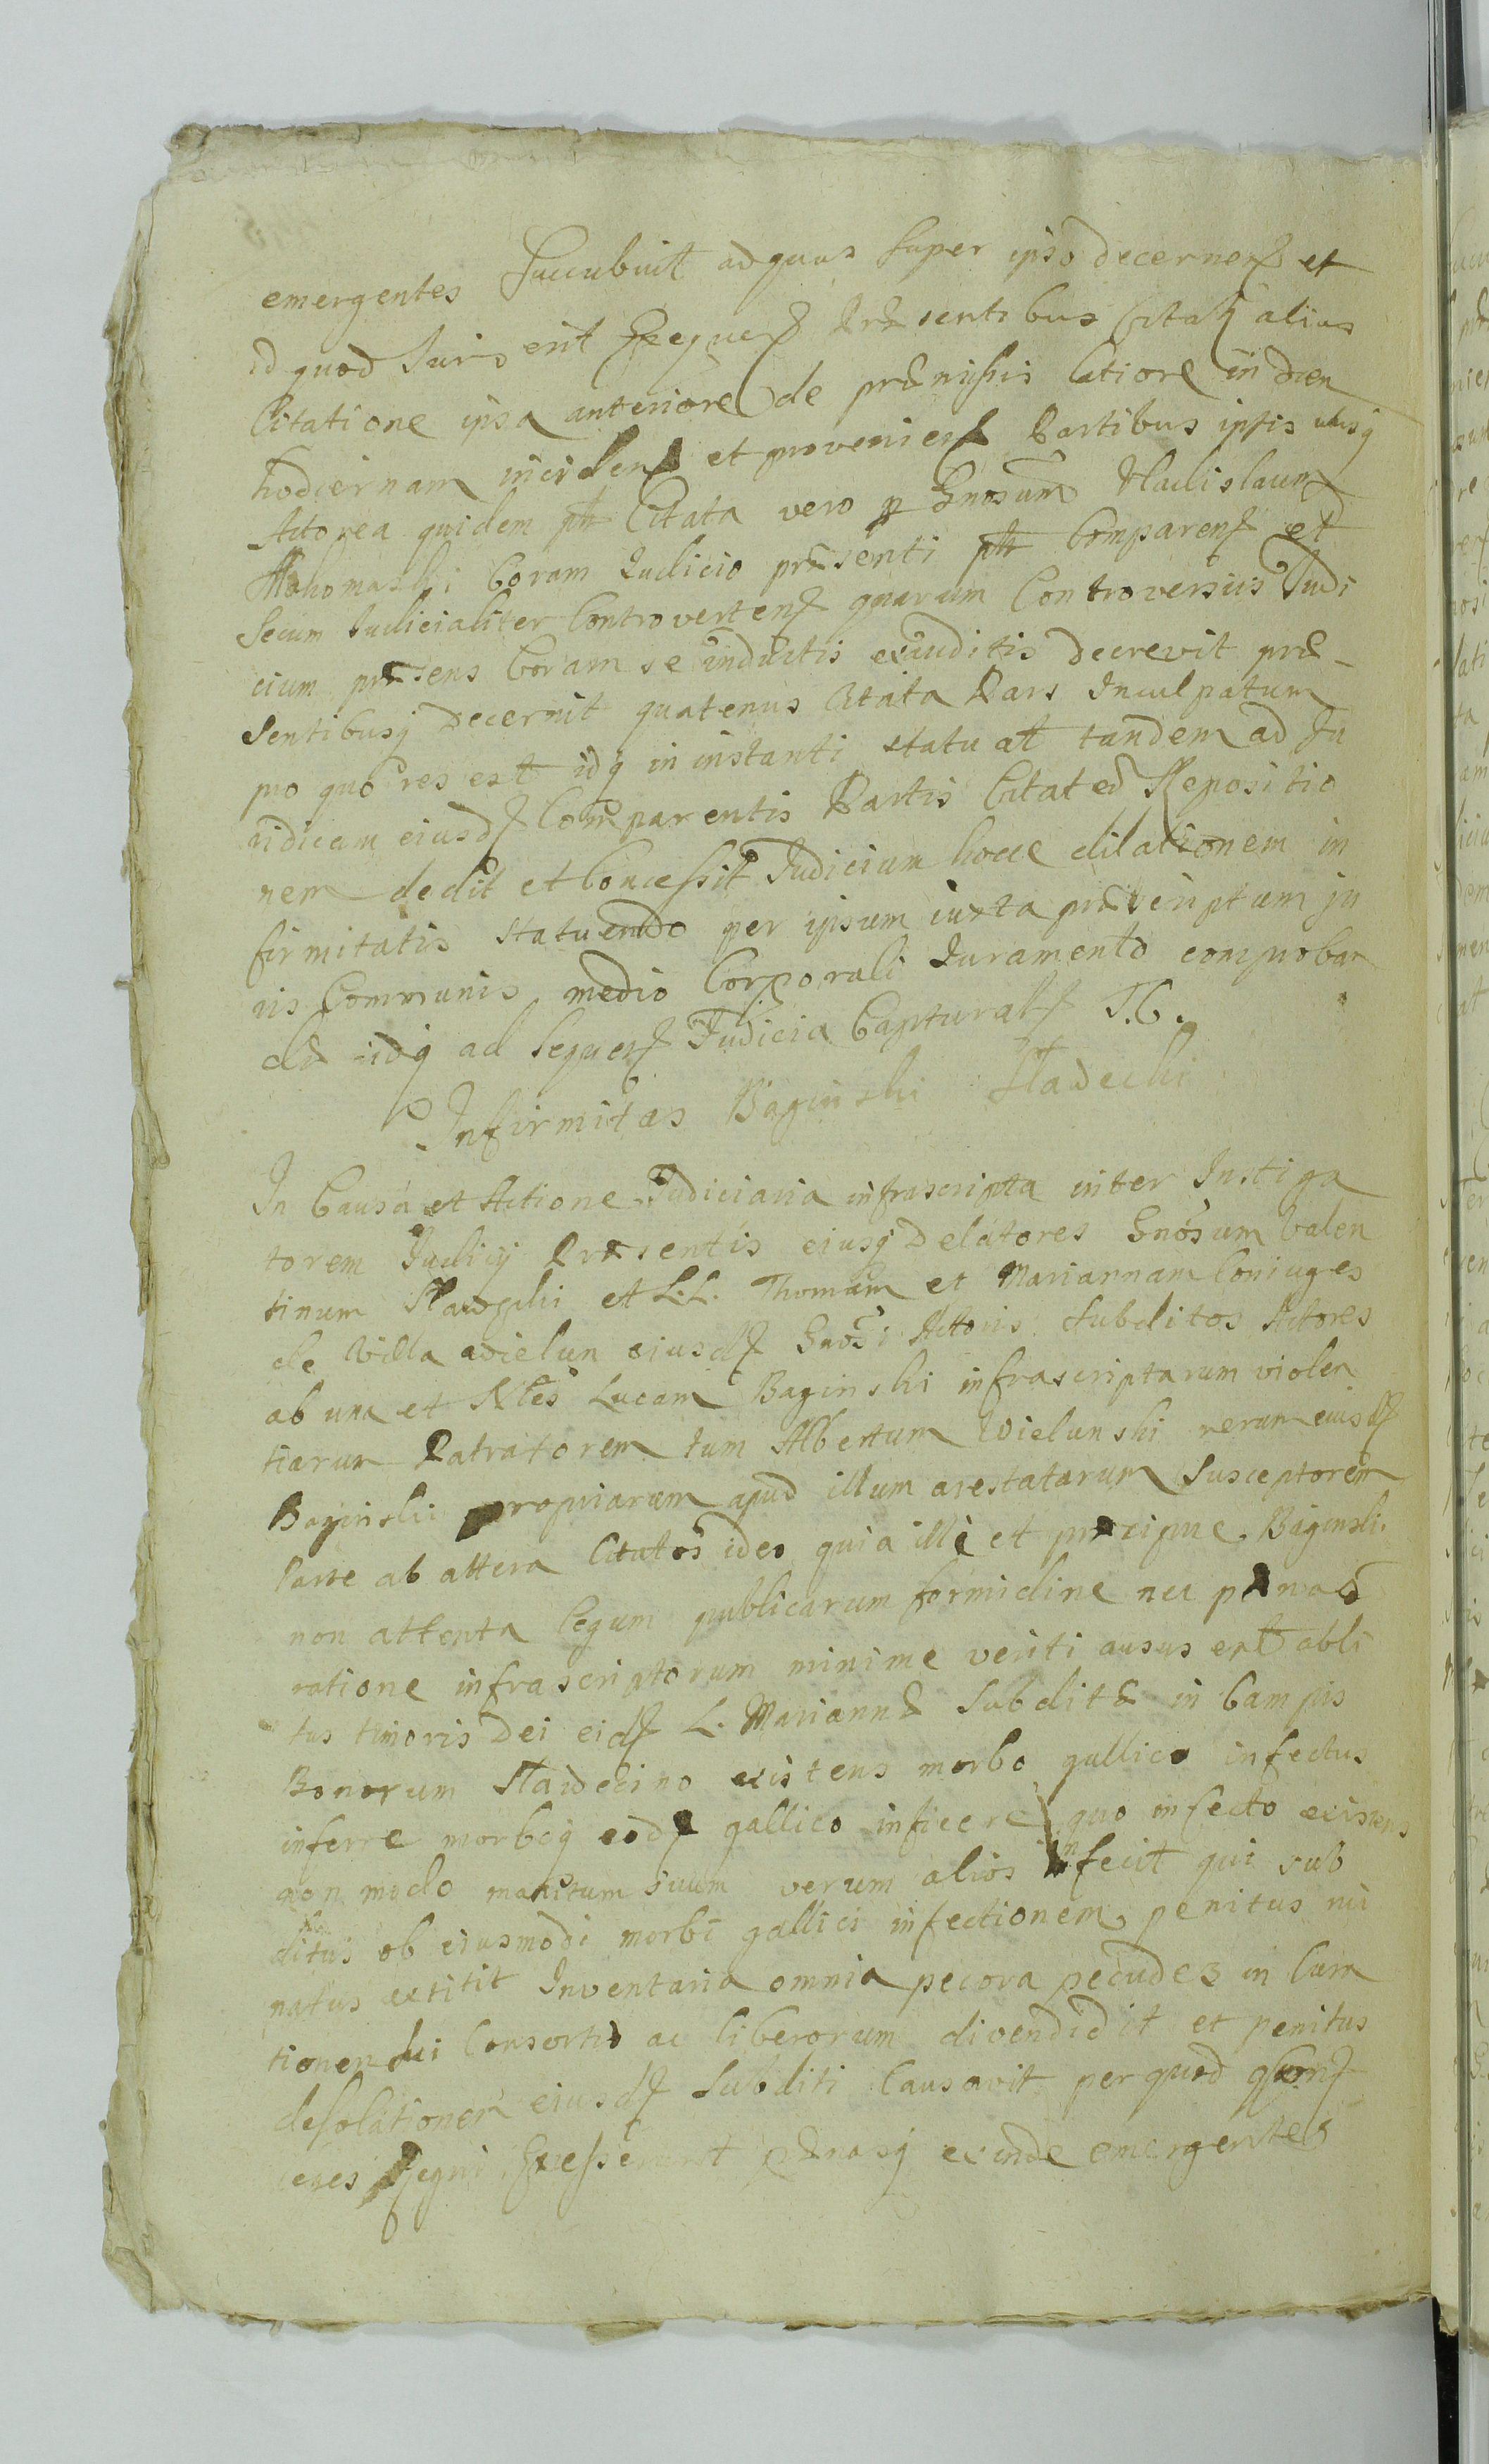 emergentes Succubuit ad quas super ipso decernen et
id quod Juris erit Exequen Præsentibus Citat alias
Citatione ipsa anteriore de præmissis latiore in diem
hodiernam inciden et provenien Partibus ipsis utrisq
Actorea quidem ptr Citata vero p Gnosum Vladislaum
Mahomaski Coram Judicio præsenti ptr Comparen et
Secum Judicialiter Controverten quarum Controversiis Judi
cium præsens Coram se inductis exauditis decrevit præ-
sentibusq decernit quatenus Citata Pars Inculpatum
pro quo res est idq in instanti statuat tandem ad Ju
ridicam eiusd Comparentis Partis Citatæ Repositio
nem dedit et Concessit Judicium hocce dilationem in
firmitatis statuendo per ipsum iuxta præscriptum ju
ris Communis medio Corporali Juramento comproban
dæ idq ad sequen Judicia Captural T. C.
Infirmitas Baginski Sladecki
In Causa et Actione Judiciaria infrascripta inter Instiga
torem Judicij Præsentis eiusq delatores Gnosum Valen
tinum et L.L. Thomam et Mariannam Coniuges
de Villa Wielun eiusd Gnosi Actoris Subditos Actores
ab una et Nbles Lucam Baginski infrascriptarum violen
tiarum Patratorem tum Albertum Wielunski rerum eiusd
Baginskii propriarum apud illum arestatarum Susceptorem
Parte ab altera Citatos ideo quia illi et præcipue Baginski
non attenta legum publicarum formidine nec pænas
ratione infrascriptorum minime veriti ausus est obli
tus timoris Dei eid L. Mariannæ Subditæ in Campis
Bonorum existens morbo gallico infectus
inferre morboq eod gallico inficere quo infecto existens
non modo maritum suum verum alios infecit qui sub
ditus ob eiusmodi morbi gallici infectionem penitus rui
natus extitit Inventaria omnia pecora pecudes in Cura
tionem sui Consortis ac liberorum divendidit et penitus
desolationem eiusd Subditi Causavit per quod
leges Regni Excesserunt pænasq exinde emergentes